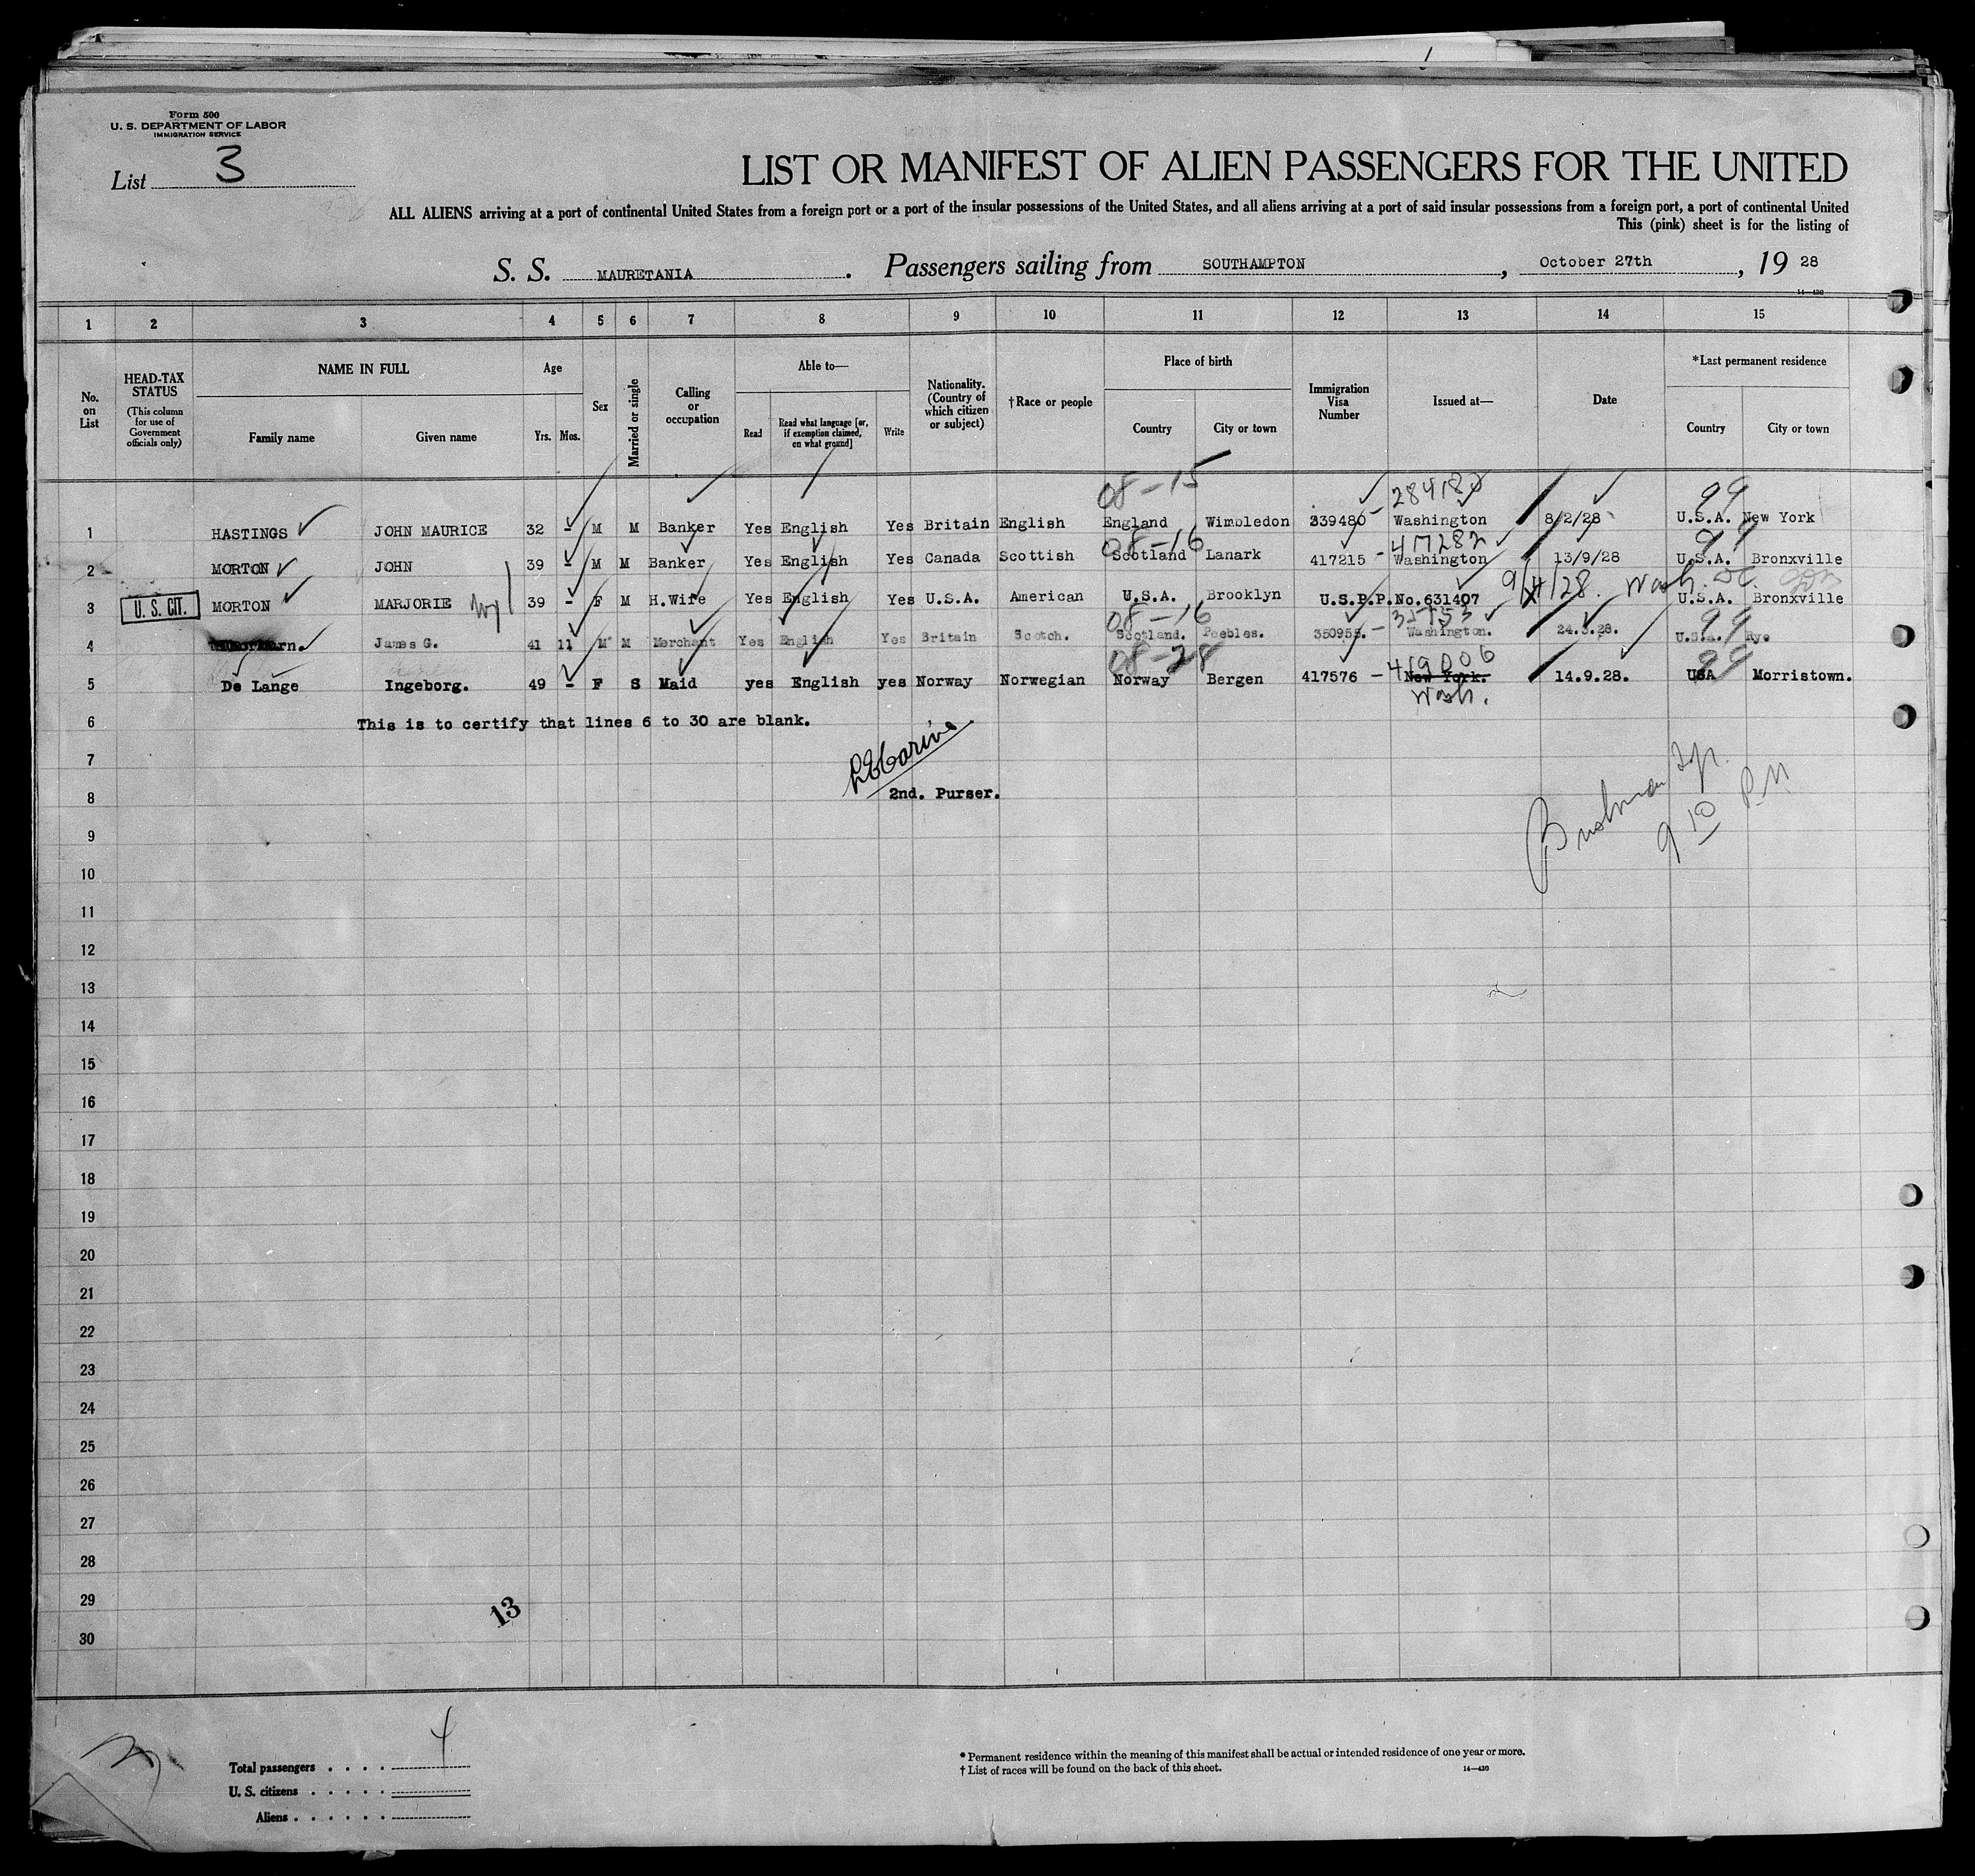 Form 500
U. S. DEPARTMENT OF LABOR
IMMIGRATION SERVICE
List 3
LIST OR MANIFEST OF ALIEN PASSENGERS FOR THE UNITED
ALL ALIENS arriving at a port of continental United States from a foreign port or a port of the insular possessions of the United States, and all aliens arriving at a port of said insular possessions from a foreign port, a port of continental United
This (pink) sheet is for the listing of
S. S. MAURETANIA . Passengers sailing from SOUTHAMPTON , October 27th , 19 28
14—430
1 2 3 4 5 6 7 8 9 10 11 12 13 14 15
No. on List
HEAD-TAX STATUS (This column for use of Government officials only)
NAME IN FULL
Family name Given name
Age
Yrs. Mos.
Sex
Married or single
Calling or occupation
Able to—
Read Read what language [or, if exemption claimed, on what ground] Write
Nationality. (Country of which citizen or subject)
†Race or people
Place of birth
Country City or town
Immigration Visa Number
Issued at—
Date
*Last permanent residence
Country City or town
08-15 284182 99
1 HASTINGS JOHN MAURICE 32 - M M Banker Yes English Yes Britain English England Wimbledon 339480 - Washington 8/2/28 U.S.A. New York
08-16 417282 99
2 MORTON JOHN 39 - M M Banker Yes English Yes Canada Scottish Scotland Lanark 417215 - Washington 13/9/28 U.S.A. Bronxville
9/4/28. Wash. DC.
3 U. S. CIT. MORTON MARJORIE 39 - F M H.Wife Yes English Yes U.S.A. American U.S.A. Brooklyn U.S.P.P.No.631407 U.S.A. Bronxville
08-16 99
4 James G. 41 11 M M Merchant Yes English Yes Britain Scotch. Scotland. Peebles. 350955. - Washington. 24.3.28. U.S.A. Rye
08-28 419006 99
5 De Lange Ingeborg. 49 - F S Maid yes English yes Norway Norwegian Norway Bergen 417576 - New York. 14.9.28. USA Morristown.
Wash.
6 This is to certify that lines 6 to 30 are blank.
7
8 2nd. Purser.
9 9 10 P.M
10
11
12
13
14
15
16
17
18
19
20
21
22
23
24
25
26
27
28
29
13
30
Total passengers . . . . 4
U. S. citizens . . . . .
Aliens . . . . . .
* Permanent residence within the meaning of this manifest shall be actual or intended residence of one year or more.
† List of races will be found on the back of this sheet. 14—430